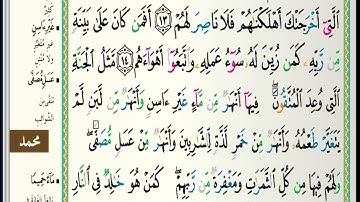 ٱلَّتِىٓ أَخْرَجَتْكَ أَهْلَكْنَـٰهُمْ فَلَا نَاصِرَ لَهُمْ ١٣ أَفَمَن كَانَ عَلَىٰ بَيِّنَةٍ
مِّن رَّبِّهِۦ كَمَن زُيِّنَ لَهُۥ سُوٓءُ عَمَلِهِۦ وَٱتَّبَعُوٓا۟ أَهْوَآءَهُم ١٤ مَّثَلُ ٱلْجَنَّةِ
ٱلَّتِى وُعِدَ ٱلْمُتَّقُونَ ۖ فِيهَآ أَنْهَـٰرٌ مِّن مَّآءٍ غَيْرِ ءَاسِنٍ وَأَنْهَـٰرٌ مِّن لَّبَنٍ لَّمْ
يَتَغَيَّرْ طَعْمُهُۥ وَأَنْهَـٰرٌ مِّنْ خَمْرٍ لَّذَّةٍ لِّلشَّـٰرِبِينَ وَأَنْهَـٰرٌ مِّنْ عَسَلٍ مُّصَفًّى ۖ
وَلَهُمْ فِيهَا مِن كُلِّ ٱلثَّمَرَٰتِ وَمَغْفِرَةٌ مِّن رَّبِّهِمْ ۖ كَمَنْ هُوَ خَـٰلِدٌ فِى ٱلنَّارِ
غَيْرِ ءَاسِنٍ
غير متغيّر
ولا منتن
عَسَلٍ مُّصَفًّى
الشوائب
محمد
مَآءً حَمِيمًا